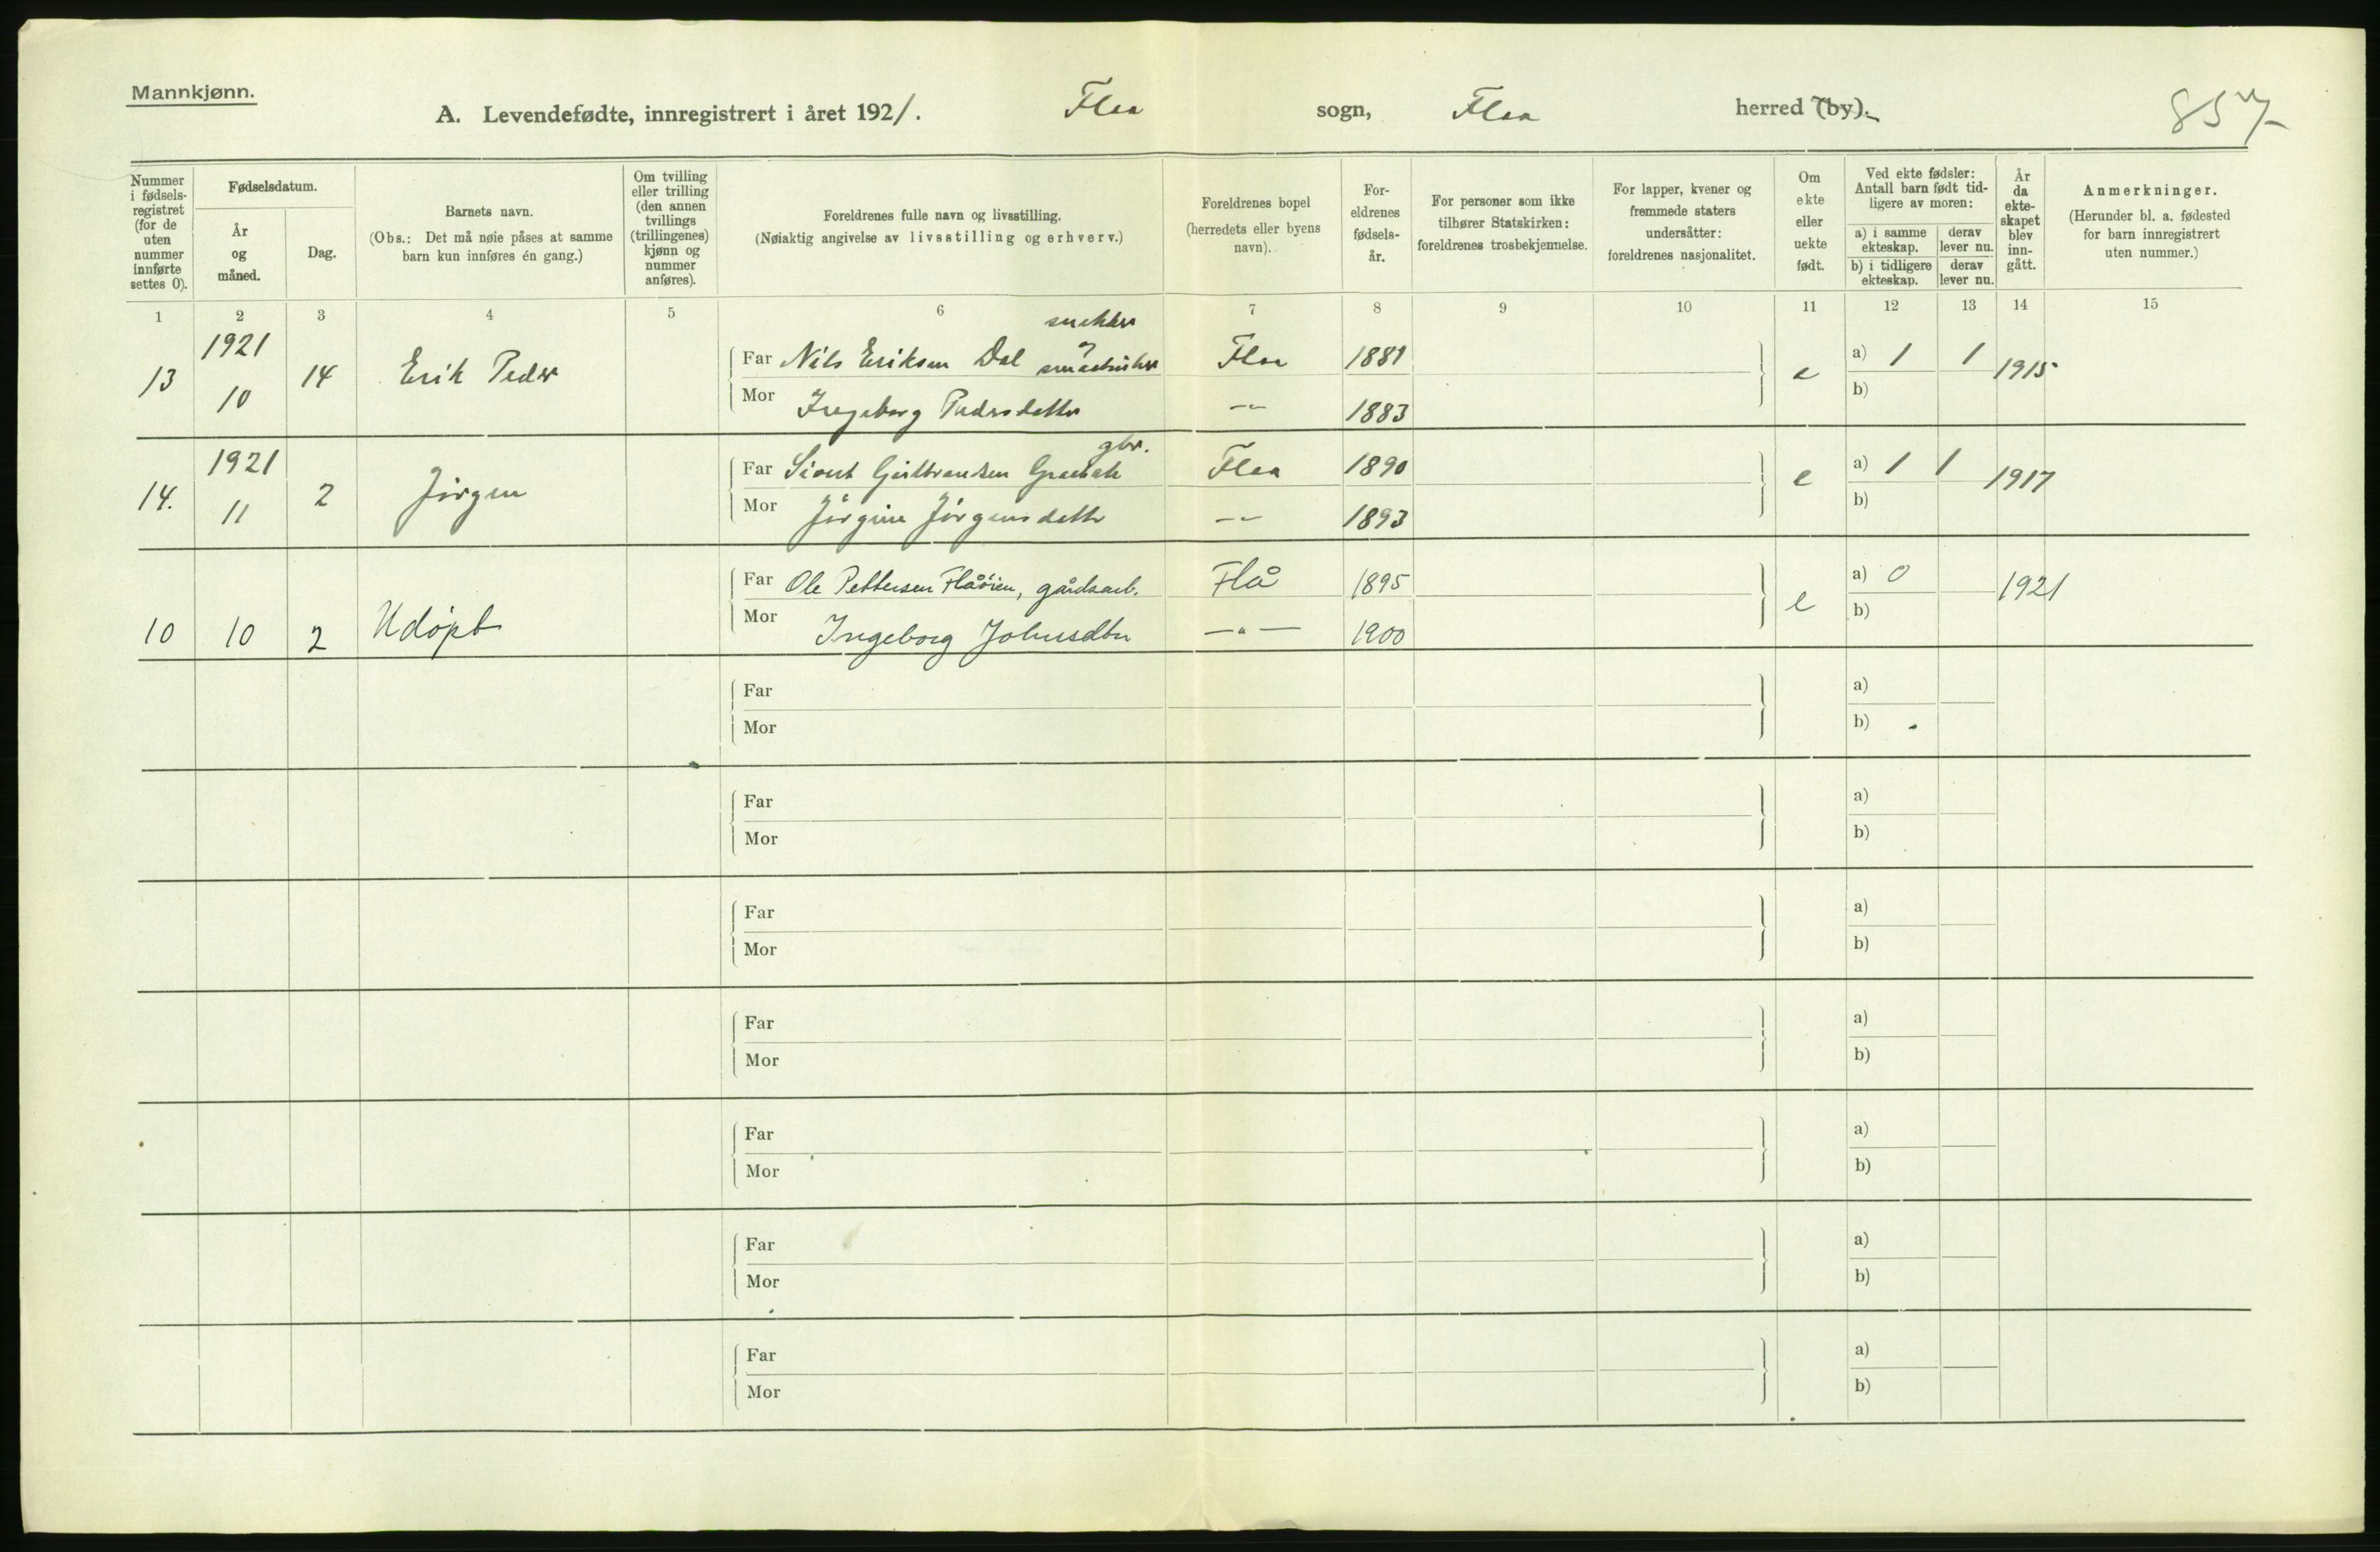 Mannkjønn.
A. Levendefødte, innregistrert i året 1921. Flaa sogn, Flaa herred (by).
857
Nummer i fødsels-registret (for de uten nummer innførte settes 0).
Fødselsdatum.
År og måned.
Dag.
Barnets navn.
(Obs.: Det må nøie påses at samme barn kun innføres én gang.)
Om tvilling eller trilling (den annen tvillings (trillingenes) kjønn og nummer anføres).
Foreldrenes fulle navn og livsstilling.
(Nøiaktig angivelse av livsstilling og erhverv.)
Foreldrenes bopel (herredets eller byens navn).
For-eldrenes fødsels-år.
For personer som ikke tilhører Statskirken: foreldrenes trosbekjennelse.
For lapper, kvener og fremmede staters undersåtter: foreldrenes nasjonalitet.
Om ekte eller uekte født.
Ved ekte fødsler: Antall barn født tid-ligere av moren:
a) i samme ekteskap. derav lever nu.
b) i tidligere ekteskap. derav lever nu.
År da ekte-skapet blev inn-gått.
Anmerkninger.
(Herunder bl. a. fødested for barn innregistrert uten nummer.)
1 2 3 4 5 6 7 8 9 10 11 12 13 14 15
snekker
13 1921 10 14 Erik Peder Far Nils Eriksen Dal og småbruker Flaa 1881 e a) 1 1 1915
Mor Ingeborg Pedersdatter -"- 1883 b)
gbr.
14. 1921 11 2 Jörgen Far Gulbrandsen Flaa 1890 e a) 1 1 1917
Mor Jörgine Jörgensdatter -"- 1893 b)
10 10 2 Udöpt Far Ole Pettersen Flåöien, gårdsarb. Flå 1895 e a) 0 1921
Mor Ingeborg Johnsdtr -"- 1900 b)
Far a)
Mor b)
Far a)
Mor b)
Far a)
Mor b)
Far a)
Mor b)
Far a)
Mor b)
Far a)
Mor b)
Far a)
Mor b)